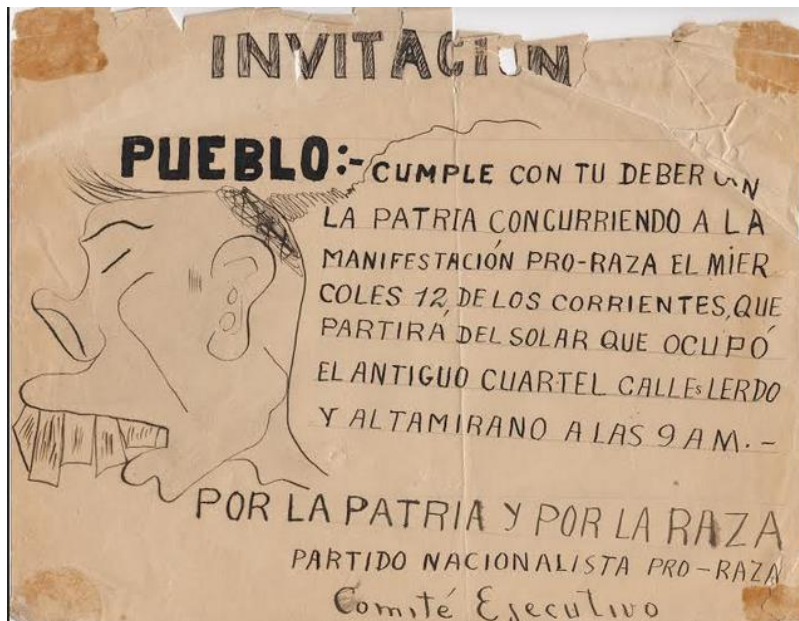 INVITACION
PUEBLO:- CUMPLE CON TU DEBER CON
LA PATRIA CONCURRIENDO A LA
MANIFESTACIÓN PRO-RAZA EL MIER
COLES 12, DE LOS CORRIENTES, QUE
PARTIRÁ DEL SOLAR QUE OCUPÓ
EL ANTIGUO CUARTEL CALLEs LERDO
Y ALTAMIRANO A LAS 9 A M. -
POR LA PATRIA Y POR LA RAZA
PARTIDO NACIONALISTA PRO-RAZA
Comité Ejecutivo